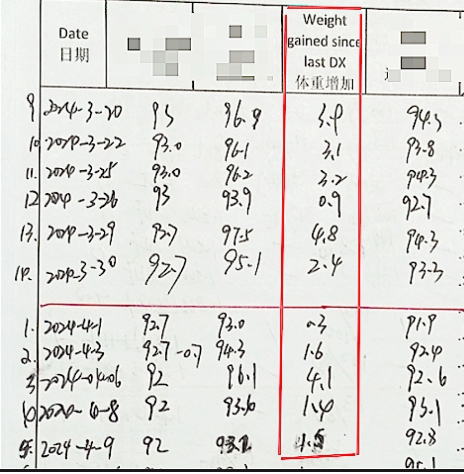 Date
日期
Weight
gained since
last DX
体重增加
9 2024-3-20 93 96.9 3.9 94.5
10 2024-3-22 93.0 96.1 3.1 93.8
11. 2024-3-25 93.0 96.2 3.2 94.3
12 2024-3-26 93 93.9 0.9 92.7
13. 2024-3-29 92.7 97.5 4.8 94.3
14. 2024-3-30 92.7 95.1 2.4 93.3
1. 2024-4-1 92.7 93.0 0.3 91.9
2. 2024-4-3 92.7-0.7 94.3 1.6 92.4
3 2024-04-06 92 96.1 4.1 92.6
2024-4-8 92 93.6 1.4 93.1
5. 2024-4-9 92 1.5 92.8
95.1